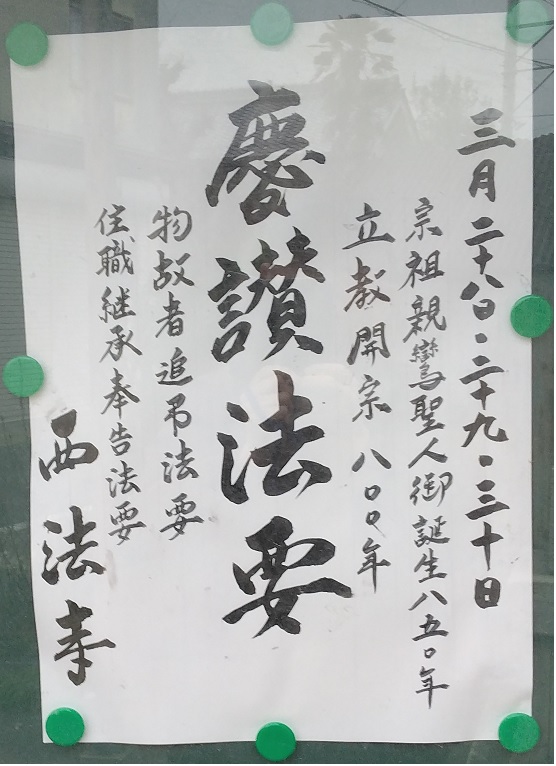 三月二十八日・二十九・三十日
宗祖親鸞聖人御誕生八五〇年
立教開宗八〇〇年
慶讃法要
物故者追弔法要
住職継承奉告法要
西法寺